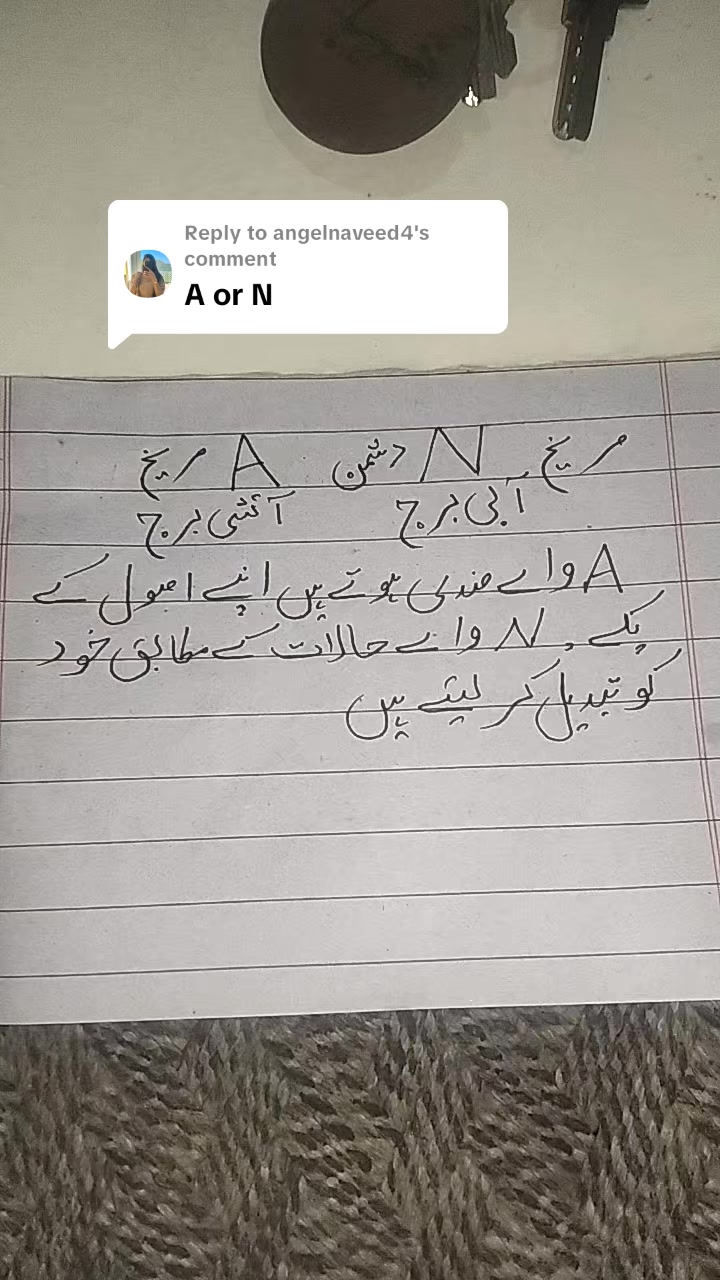 Reply to angelnaveed4's
comment
A or N
مریخ N دشمن A مریخ
آبی برج آتشی برج
A والے ضدی ہوتے ہیں اپنے اصول کے
پکے۔ N والے حالات کے مطابق خود
کو تبدیل کر لیتے ہیں